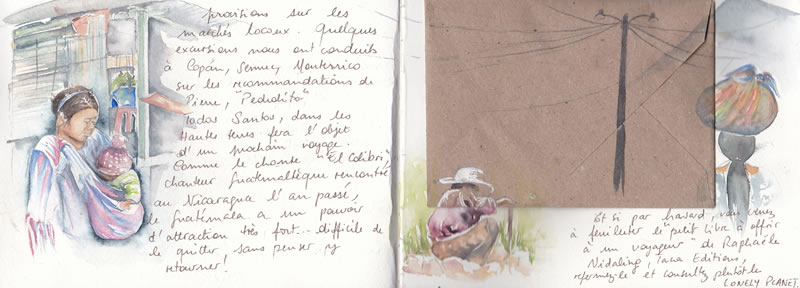 provisions sur les
marchés locaux. Quelques
excursions nous ont conduits
à Copán, Semuc, Monterrico
sur les recommandations de
Pierre, "Pedrolito"
Todos Santos, dans les
Hautes terres fera l'objet
d'un prochain voyage.
Comme le chante "El Colibri",
chanteur guatemaltèque rencontré
au Nicaragua l'an passé,
le Guatemala a un pouvoir
d'attraction très fort... difficile de
le quitter sans penser y
retourner!
Et si par hasard, vous venez
à feuilleter le "petit livre à offrir
à un voyageur" de Raphaële
Vidaling, Tana Editions,
refermez-le et consultez plutôt le
LONELY PLANET.